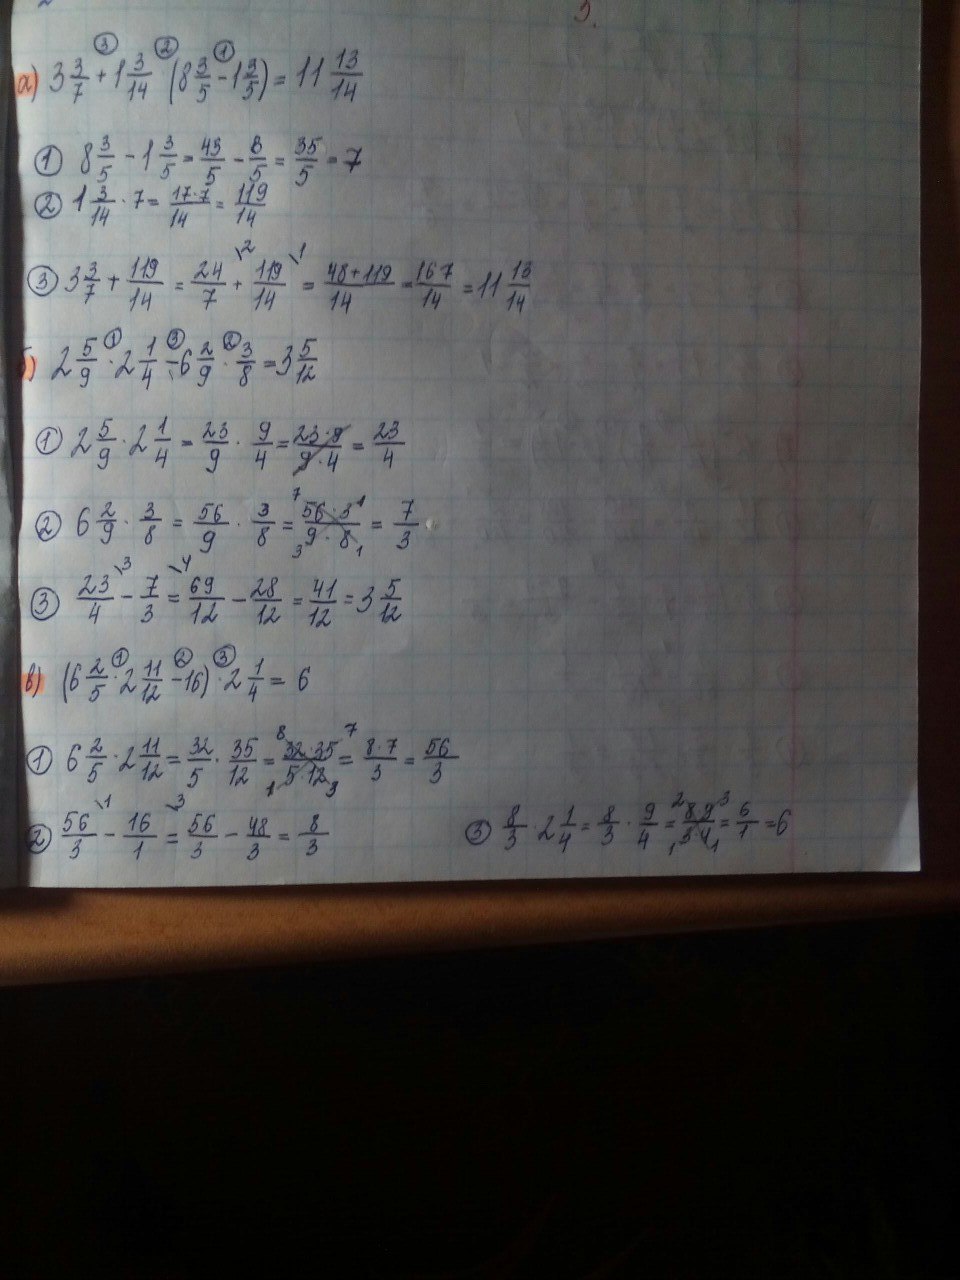 3.
а) 3 3/7 + 1 3/14 (8 3/5 - 1 3/5) = 11 13/14
① 8 3/5 - 1 3/5 = 43/5 - 8/5 = 35/5 = 7
② 1 3/14 · 7 = 17·7/14 = 119/14
③ 3 3/7 + 119/14 = 24/7 + 119/14 = 48+119/14 = 167/14 = 11 13/14
б) 2 5/9 · 2 1/4 - 6 2/9 · 3/8 = 3 5/12
① 2 5/9 · 2 1/4 = 23/9 · 9/4 = 23·9/9·4 = 23/4
② 6 2/9 · 3/8 = 56/9 · 3/8 = 56·3/9·8 = 7/3
③ 23/4 - 7/3 = 69/12 - 28/12 = 41/12 = 3 5/12
в) (6 2/5 · 2 11/12 - 16) · 2 1/4 = 6
① 6 2/5 · 2 11/12 = 32/5 · 35/12 = 32·35/5·12 = 8·7/3 = 56/3
② 56/3 - 16/1 = 56/3 - 48/3 = 8/3
③ 8/3 · 2 1/4 = 8/3 · 9/4 = 8·9/3·4 = 6/1 = 6